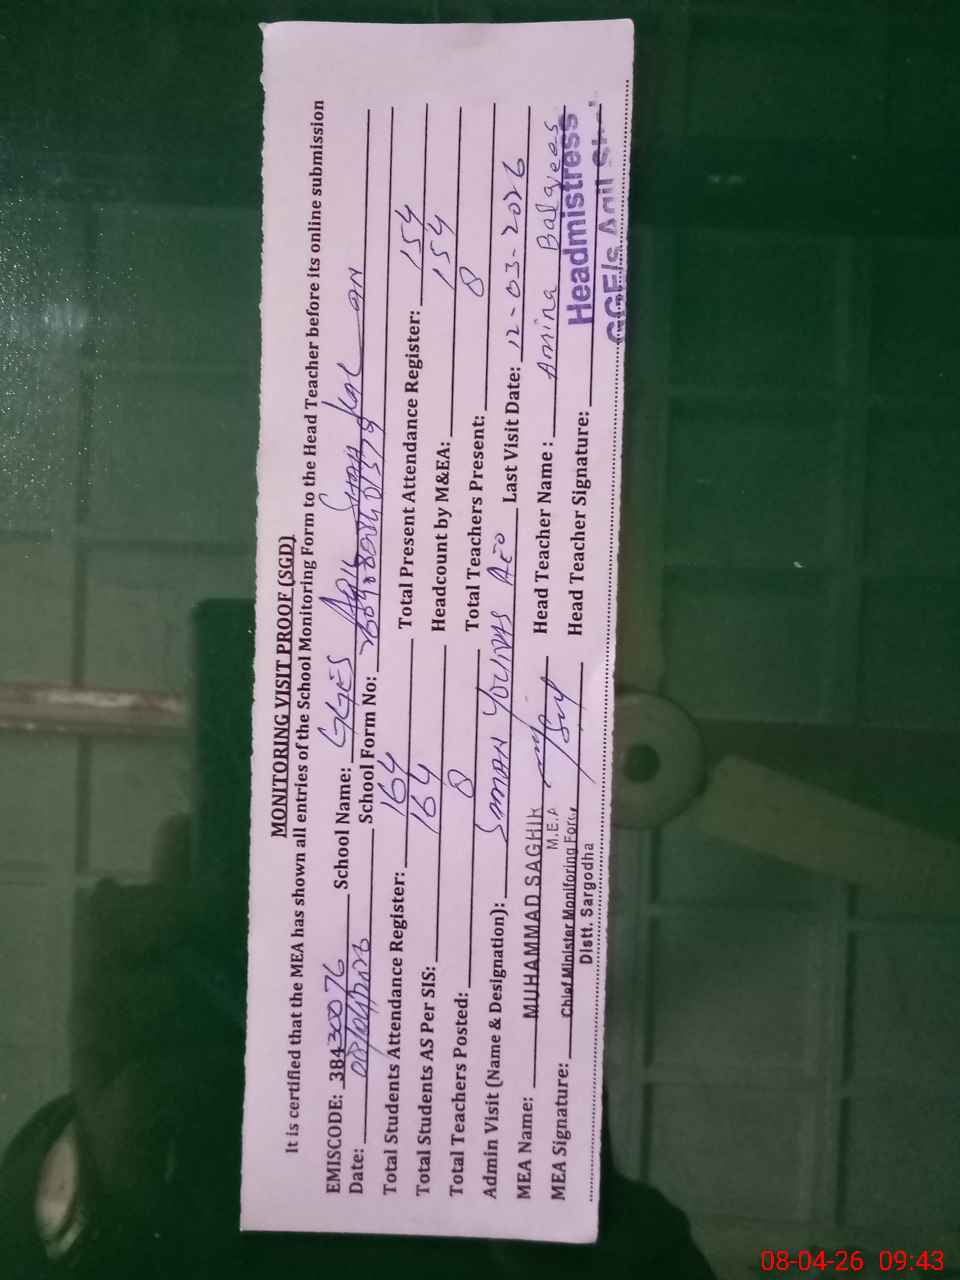 MONITORING VISIT PROOF (SGD)
It is certified that the MEA has shown all entries of the School Monitoring Form to the Head Teacher before its online submission
EMISCODE: 38430076 School Name: GGES Aqil Shah
Date: 08/04/2026 School Form No:
Total Students Attendance Register: 164 Total Present Attendance Register: 154
Total Students AS Per SIS: 164 Headcount by M&EA: 154
Total Teachers Posted: 8 Total Teachers Present: 8
Admin Visit (Name & Designation): YOUNAS AEO Last Visit Date: 12-03-2026
MEA Name: MUHAMMAD SAGHIR Head Teacher Name : Amina Balqees
M.E.A
MEA Signature: Head Teacher Signature:
Chief Minister Monitoring Force
Distt. Sargodha
Headmistress
GGE/s Aqil
08-04-26 09:43